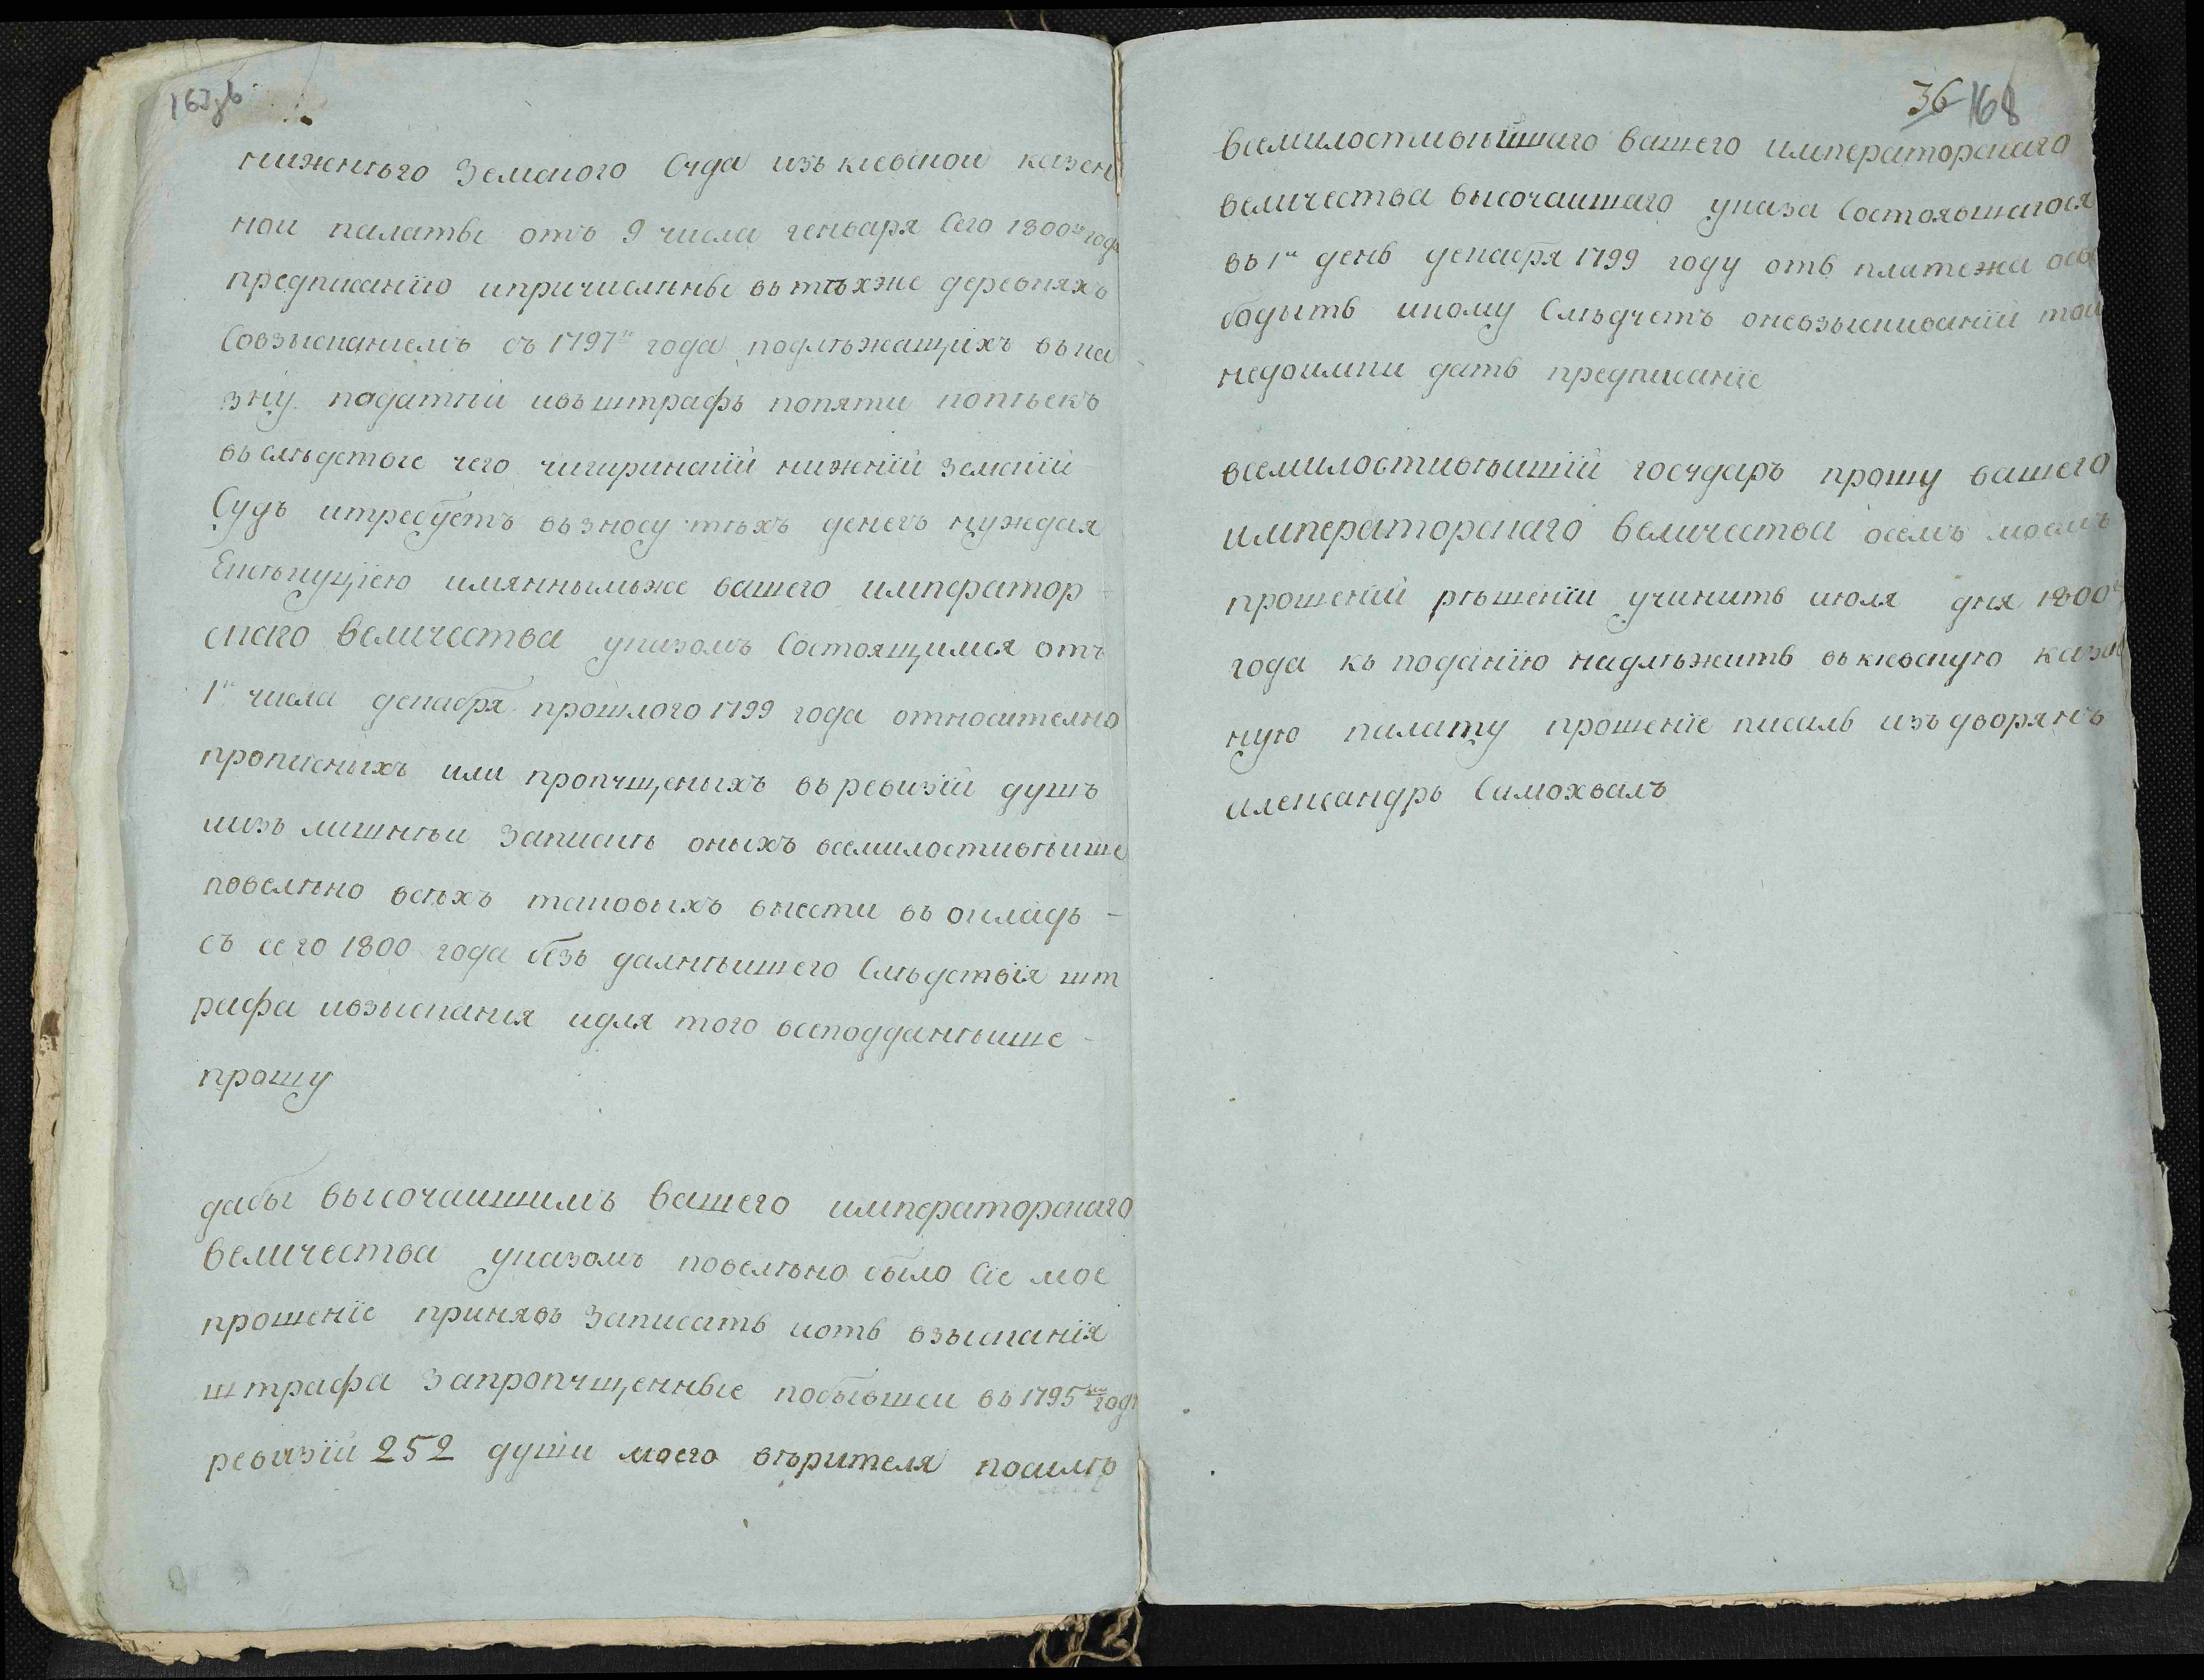 167зв
нижнѣго Земского Суда изъ киевской казен
ной палаты отъ 9 числа генваря Сего 1800го года
предписанїю ипричисленны въ тѣхже деревняхъ
Совзысканиемъ съ 1797го года подлѣжащїхъ въ ка
зну податнїй ивъ штрафъ попяти копѣекъ
въ слѣдствие чего чигиринскїй нижнїй Земскїй
Судъ итребуетъ вьзносу тѣхъ денегъ нуждая
Екзѣкуцїею имяннымьже вашего император
скаго величества указомъ Состоящимся отъ
1го числа декабря прошлого 1799 года относително
прописныхъ или пропущеныхъ въ ревизїи душъ
иизъ лишнѣи Запискѣ оныхъ всемилостивѣише
повелѣно всѣхъ таковыхъ внести въ окладъ -
съ сего 1800 года безъ далнѣишего Слѣдствїя шт
рафа ивзыскания идля того всеподданнѣише -
прошу
дабы высочаишимъ вашего императорскаго
величества указомъ повелѣно было Сїе мое
прошенїе принявъ Записать иотъ взысканїя
штрафа Запропущенные побывшеи въ 1795мъ году
ревизїи 252 души моего вѣрителя посилѣ
36 168
всемилостивѣйшаго вашего императорскаго
величества высочаишаго указа Состоявшагося
въ 1й день декабря 1799 году отъ платежа осво
бодыть икому Слѣдуетъ оневзыскиванїи тои
недоимки дать предписанїе
всемилостивѣишїй государь прошу вашего
императорскаго величества осемъ моемъ
прошенїи рѣшенїи учинить июля дня 1800го
года къ поданїю надлѣжить въ киевскую казен
ную палату прошенїе писалъ изъ дворянъ
александръ Самохвалъ